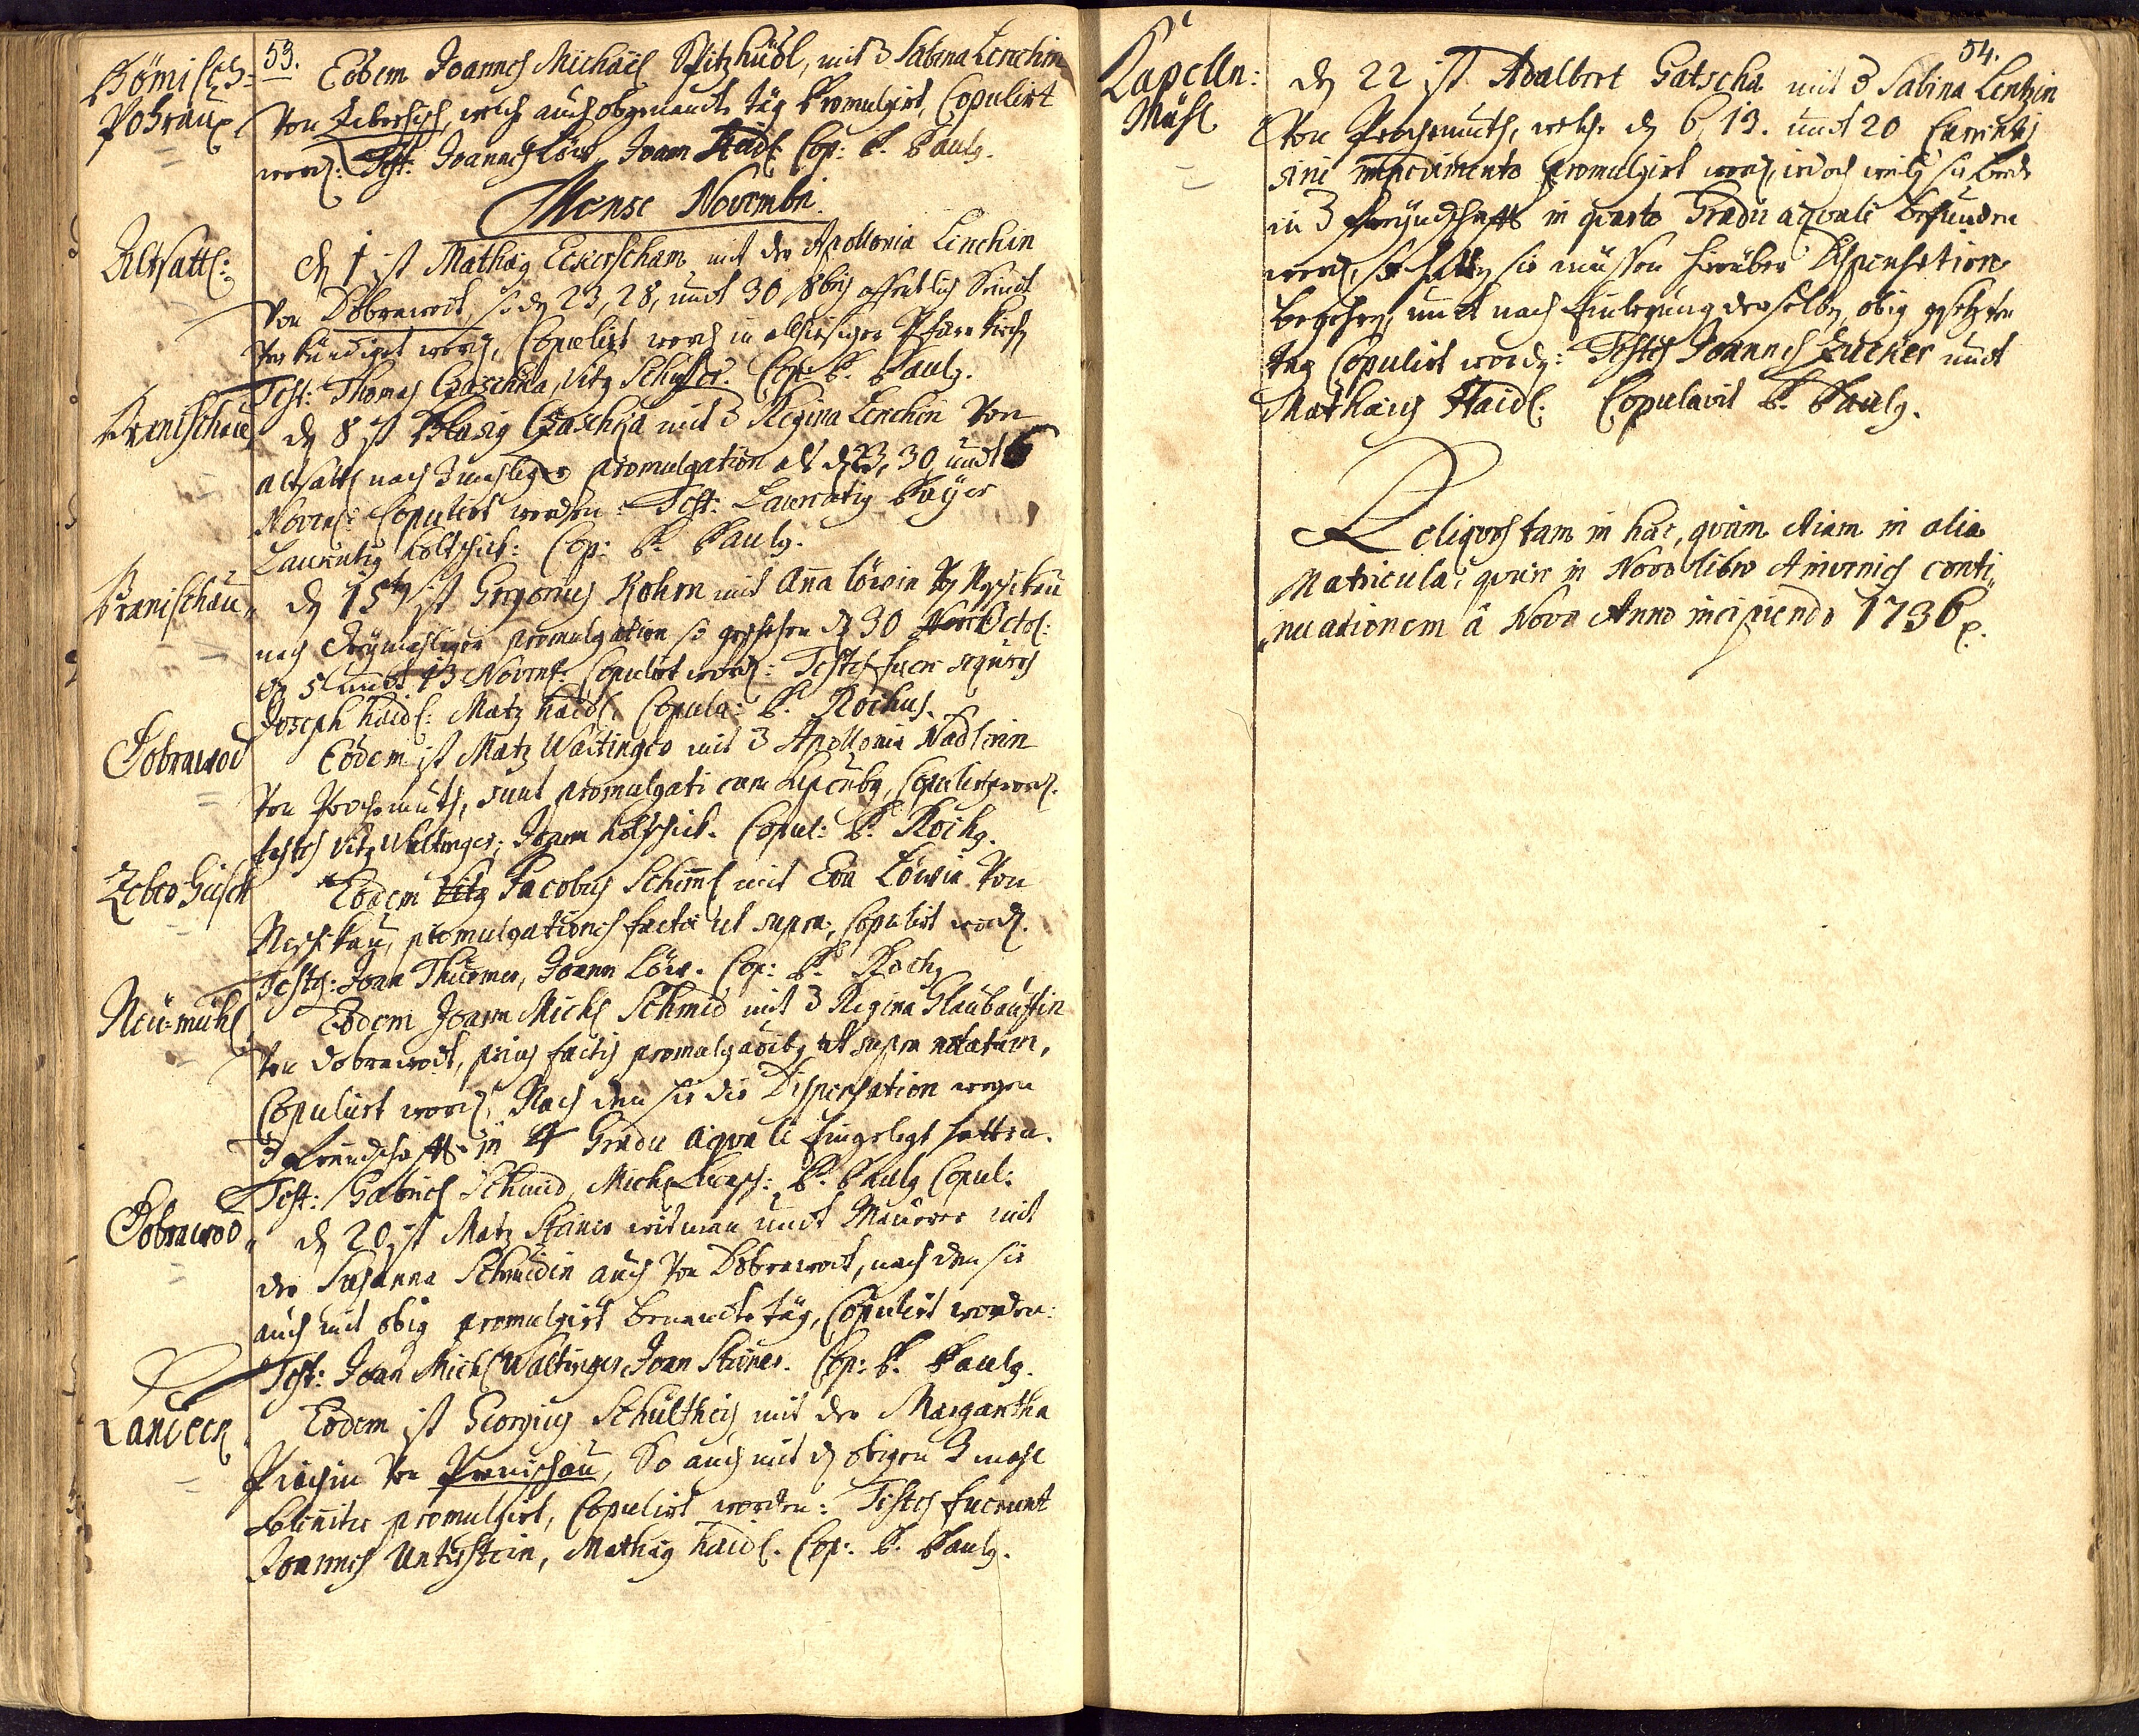 53.
Bömisch-
Poßrau
Eodem Joannes Michäel Spitzhüdl, mit d Sabina Lerchin
Von Zebersisch, welche auch obgenandte täg Promulgirt, Copulirt
word: Test: Joannes Löw, Joann Haidl Cop: P. Paulg.
Mense Novembri.
Altsattl:
d 1 ist Mathäg Eckerscham mit der Apollonia Lerchin
Von Dobrawod, so dg 23, 28, undt 30 8bris offentlich
Verkündiget word, Copulirt word in alhiesiger Pfarr Kirch
Test: Thomas Czaschka, Vitg Schuster. Cop: P. Paulg.
Branischau
dg 8 ist Blasig Czaschka mit d Regina Lerchin Von
altsattl nach 3 mahliger promulgation als dg 23, 30, undt 6
Novem: Copulirt worden: Test: Laurentig Payer
Laurentig Holtschick: Cop: P. Paulg.
Branischau
dg 15ten ist Gregorius Rohm mit Anna Löwin
nach dreymahliger promulgation so geschehen dg 30 Octob:
dg 5 undt 13 Novem: Copulirt word: Testes fuer sequens
Joseph Haidl: Matz Haidl: Copula: P. Rochus.
Dobrawod
Eodem ist Matz Waltinger mit d Apollonia Nadlerin
Von Prochomuth, sunt promulgati cum Copulirt word.
testes Vitg Waltinger, Joann Holtschick. Copul: P. Rochg.
Zeberhisch
Eodem Jacobus Schiml mit Eva Löwin Von
Neschikau, promulgationes factae ut supra, Copulirt word.
Testes: Joan Thürmer, Joann Löw. Cop: P. Rochg
Neu-mühl
Eodem Joann Michl Schmid mit d Regina Glaubaufin
Von Dobrawod, prius factis promulgaoibg ut supra notatum,
Copulirt word, Nach dem sie die Dispensation wegen
d freundschafft in 4 Gradu aequali Eingelegt hatten.
Test: Gabriel Schmid, Michl P. Paulg Copul:
Dobrawod
dg 20 ist Matz Steiner witman undt Maurer mit
der Susanna Schmidin auch Von Dobrawod, nach dem sie
auch mit obig promulgirt benandte täg, Copulirt worden:
Test: Joan Michl Waltinger Joan Steiner. Cop: P. Paulg.
Landeck
Eodem ist Georgius Schultheis mit der Margaretha
Von Pranischau, So auch mit dg obigen 3 mahl
solenniter promulgirt, Copulirt worden: Testes fuerunt
Joannes Unterstein, Mathäg Haidl. Cop: P. Paulg.
54.
Kapelln:
Mühl
dg 22 ist Adalbert Gatscha mit d Sabina Lentzin
Von Prochomuth, welche dg 6, 13. undt 20 Currentis
sine impedimento promulgirt word, iedoch weilg sie beede
in d Freyndschafft in quarto Gradu aequali befunden
word, so hattg sie müssen hierüber Dispensation
begehren, undt nach Einlegung derselbg, obig gesetzten
tag Copulirt wordg: Testes Joannes Zucker undt
Mathäus Haidl: Copulavit P. Paulg.
Reliquos tam in hac, quam etiam in alia
Matricula, quaere in Novo libro Ainvenies conti
nuationem â Novo Anno incipiendo 1736.